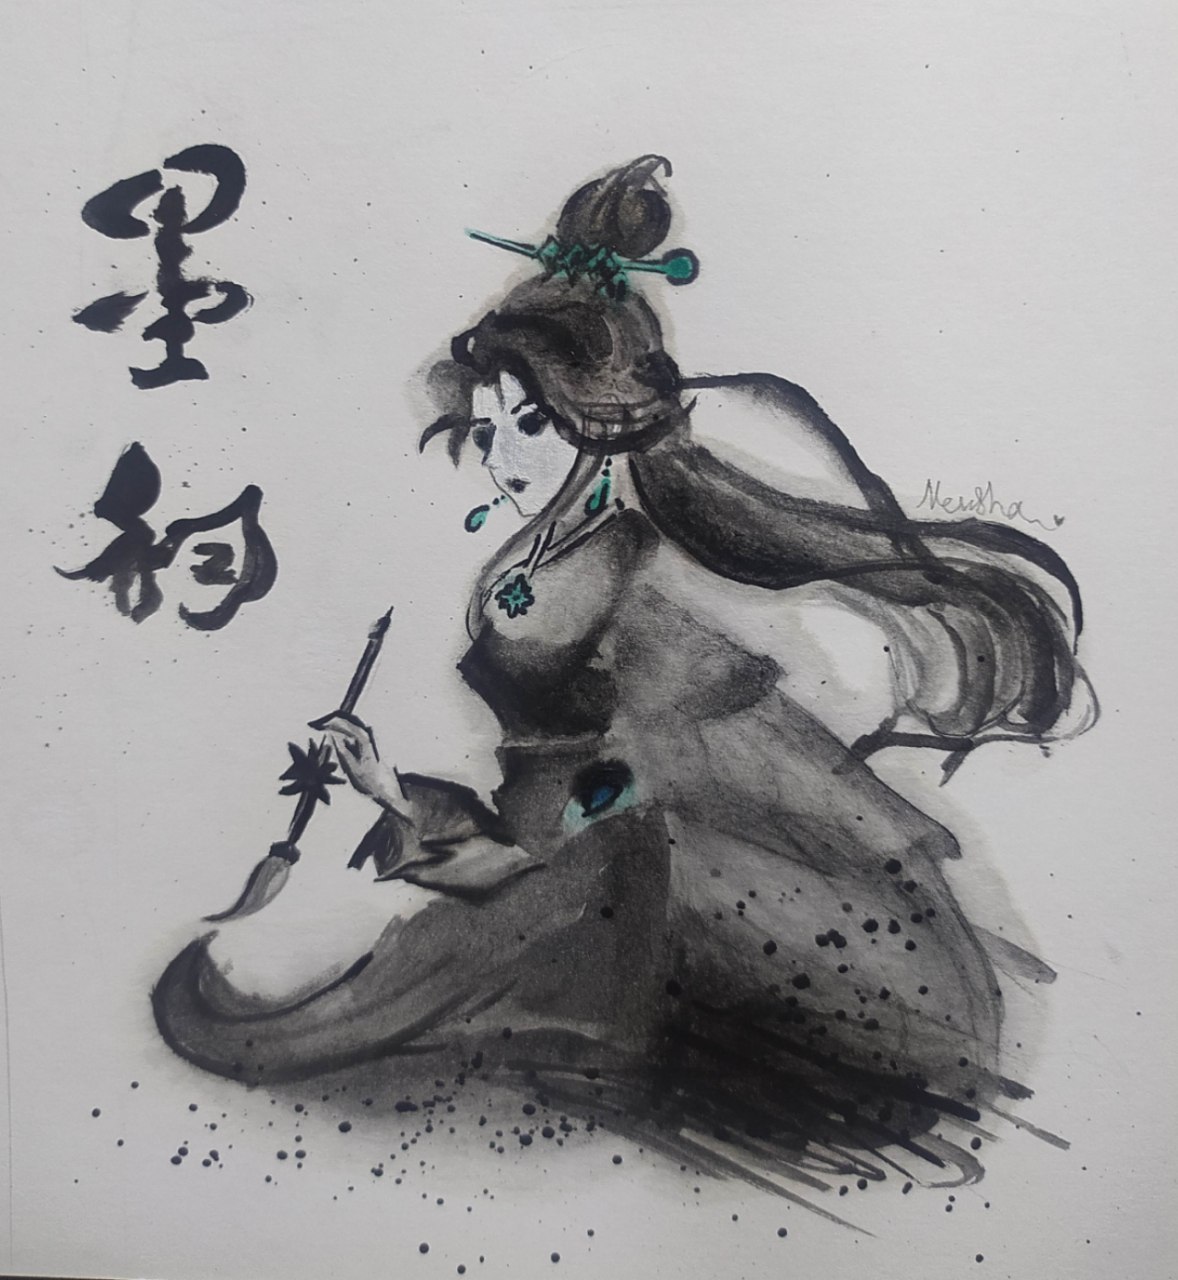 墨
韵
Neusha